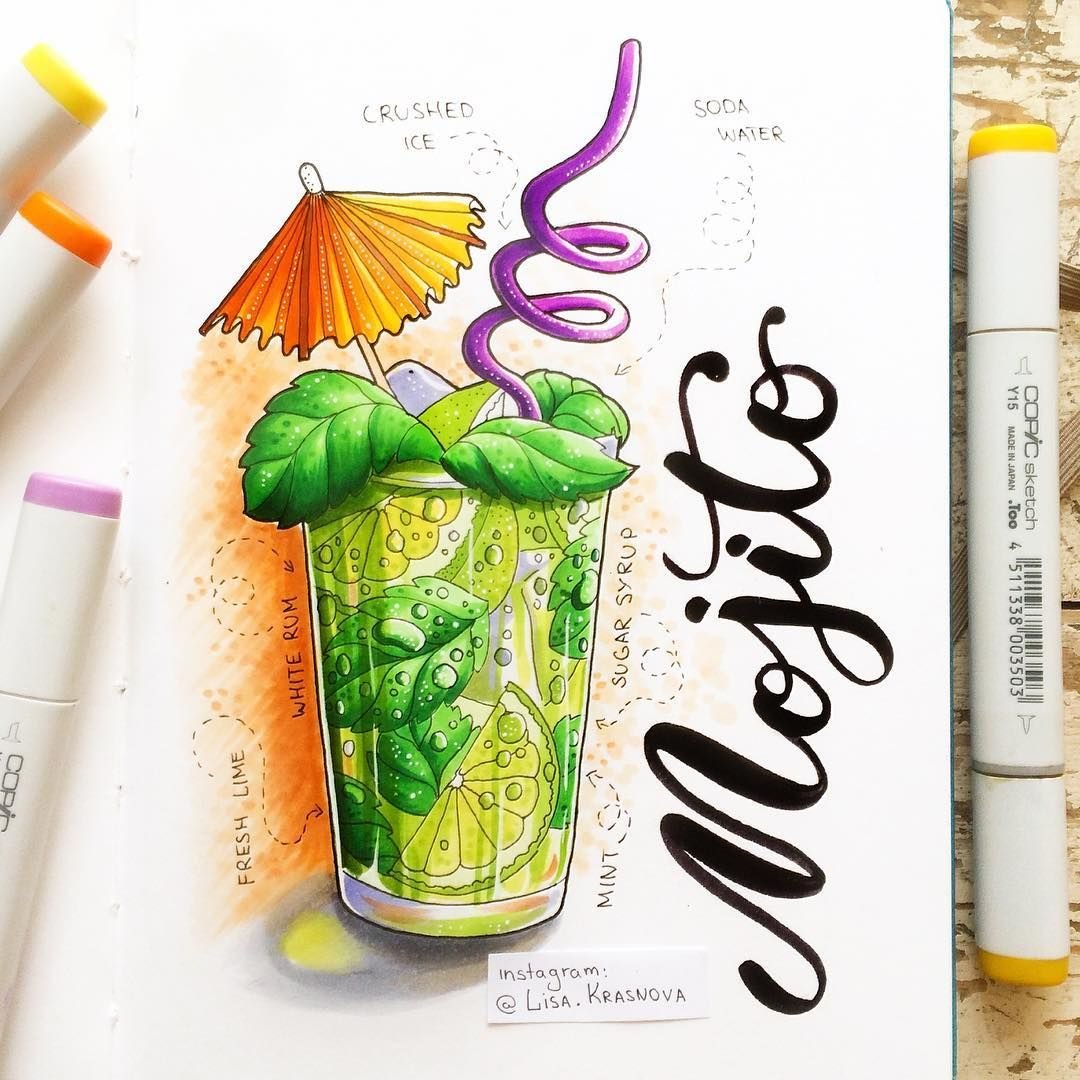 CRUSHED
ICE
SODA
WATER
WHITE RUM
SUGAR SYRUP
FRESH LIME
MINT
Mojito
instagram:
@ LISA.KRASNOVA
COPIC sketch
Y15 MADE IN JAPAN .Too
4 511338 003503
COPIC